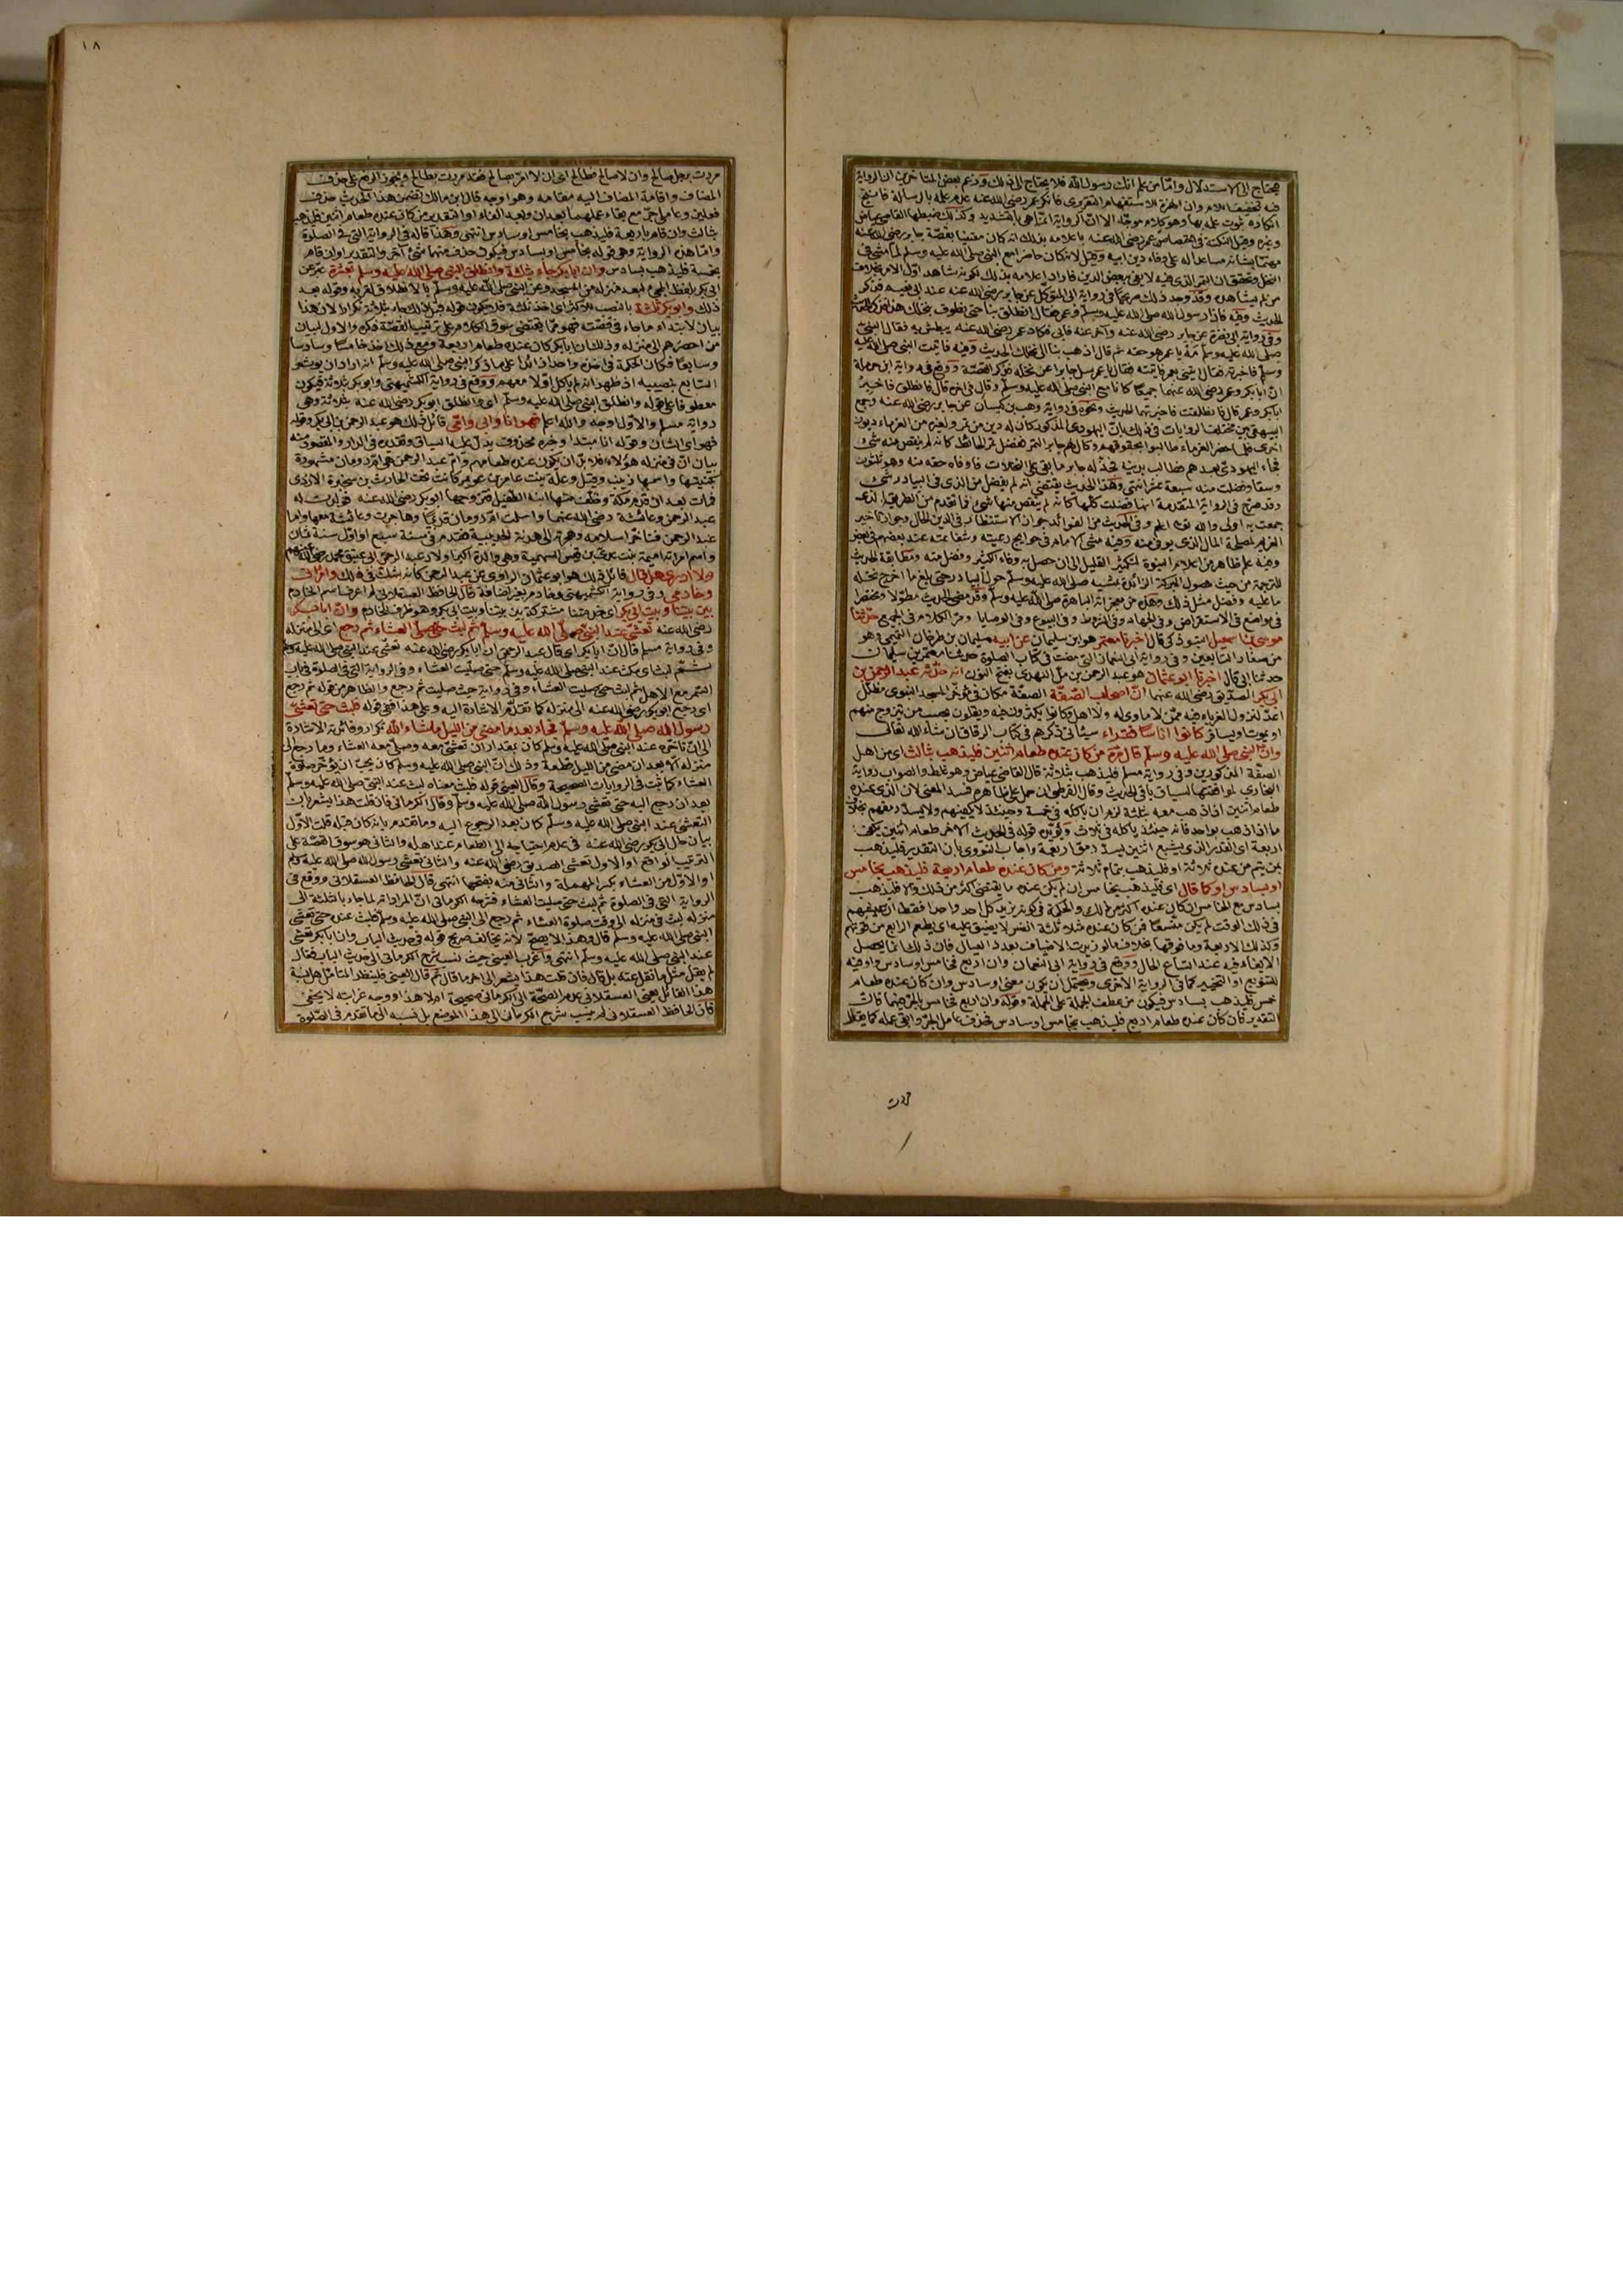 يحتاج الى الاستدلال وامّا من علم انك رسول الله فلا يحتاج الى ذلك وزعم بعض المتأخرين ان الرواية
فيه بتخفيف اللام وان الهمزة للاستفهام التقريرى فانكر عمر رضى الله عنه عدم علمه بالرسالة فانتج
انكاره ثبوت علمه بها وهو كلام موجّه الا انّ الرواية انما هى بالتشديد وكذلك ضبطها القاضى عياض
وغيره وقيل النكتة فى اختصاص عمر رضى الله عنه باعلامه بذلك انه كان معتنيا بقصّة جابر رضى الله عنه
مهتمّا بشانه مساعدا له على وفاء دين ابيه وقيل لانه كان حاضرا مع النبى صلى الله عليه وسلم لمّا مشى فى
النخل وتحقق ان التمر الذى فيه لا يفى ببعض الدين فاراد اعلامه بذلك لكونه شاهد اوّل الامر بخلاف
من لم يشاهد وقد وجد ذلك صريحا فى رواية ابى المتوكل عن جابر رضى الله عنه عند ابى نعيم فذكر
الحديث وفيه فاذا رسول الله صلى الله عليه وسلم وعمر فقال انطلق بنا حتى نطوف بنخلك هذا فذكر الحديث
وفى رواية ابى نضرة عن جابر رضى الله عنه وآخر عنه فابى فكاد عمر رضى الله عنه يبطش به فقال النبى
صلى الله عليه وسلم مَهْ يا عمر هو حقه ثم قال اذهب بنا الى نخلك الحديث وفيه فاتيت النبى صلى الله عليه
وسلم فاخبرته فقال ائتنى بعمر فاتيته فقال يا عمر سل جابرا عن نخله فذكر القصّة ووقع فى رواية ابن حرملة
انّ ابا بكر وعمر رضى الله عنهما جميعًا كانا مع النبى صلى الله عليه وسلم وقال فى اخره قال فانطلق فاخبر
ابا بكر وعمر قال فانطلقت فاخبرتهما الحديث ونحوه فى رواية وهب بن كيسان عن جابر رضى الله عنه وجمع
البيهقى بين مختلف الروايات فى ذلك بان اليهودى المذكور كان له دين من تمر ولغيره من الغرماء ديون
اخرى فلما حضر الغرماء طالبوا بحقوقهم وكال لهم جابر التمر ففضل تمر الحائط كانه لم ينقص منه شئ
فجاء اليهودى بعدهم فطالب بدينه فجدّ له جابر ما بقى على النخلات فاوفاه حقه منه وهو ثلثون
وسقا وفضلت منه سبعة عشر انتهى وهذا الجمع يقتضى انه لم يفضل من الذى فى البيادر شئ
وقد صرّح فى الرواية المتقدمة انها فضلت كلّها كانه لم ينقص منها شئ فما تقدم من الطريق الذى
جمعت به اولى والله تعالى اعلم وفى الحديث من الفوائد جواز الاستنظار فى الدين الحال وجواز تأخير
الغريم لمصلحة المال الذى يوفى منه وفيه مشى الامام فى حوايج رعيته وشفاعته عند بعضهم فى بعض
وفيه علم ظاهر من اعلام النبوة لتكثير القليل الى ان حصل به وفاء الكثير وفضل منه ومطابقة الحديث
للترجمة من حيث حصول البركة الزائدة بمشيه صلى الله عليه وسلم حول البيادر حتى بلغ ما اخرج نخله
ما عليه وفضل مثل ذلك وهذه من معجزاته الباهرة صلى الله عليه وسلم وقد مضى الحديث مطوّلا ومختصرا
فى مواضع فى الاستقراض وفى الجهاد وفى الشروط وفى البيوع وفى الوصايا ومرّ الكلام فى الجميع حدّثنا
موسى بن اسمعيل التبوذكى قال اخبرنا معتمر هو ابن سليمان عن ابيه سليمان بن طرخان التيمى وهو
من صغار التابعين وفى رواية ابى النعمان التى مضت فى كتاب الصلوة حدثنا معتمر بن سليمان
حدثنا ابى قال اخبرنا ابو عثمان هو عبد الرحمن بن ملّ النهدى بفتح النون انه حدّثه عبد الرحمن بن
ابى بكر الصديق رضى الله عنهما انّ اصحاب الصُّفّة الصفّة مكان فى مؤخّر المسجد النبوى مظلّل
اعدّ لنزول الغرباء فيه ممّن لا ماوى له ولا اهل وكانوا يكثرون فيه ويقلون بحسب من يتزوج منهم
او يموت او يسافر كانوا اناسًا فقراء سيأتى ذكرهم فى كتاب الرقاق ان شاء الله تعالى
وانّ النبى صلى الله عليه وسلم قال مرّة من كان عنده طعام اثنين فليذهب بثالث اى من اهل
الصفّة المذكورين وفى رواية مسلم فليذهب بثلاثة قال القاضى عياض وهو غلط والصواب رواية
البخارى لموافقتها لسياق باقى الحديث وقال القرطبى ان حمل على ظاهره فسد المعنى لان الذى عنده
طعام اثنين اذا ذهب معه بثلثة لزم ان ياكله فى خمسة وحينئذ لا يكفيهم ولا يسدّ رمقهم بخلاف
ما اذا ذهب بواحد فانه حينئذ ياكله فى ثلاث ويؤيّده قوله فى الحديث الاخر طعام اثنين يكفى
اربعة اى القدر الذى يشبع اثنين يسدّ رمق اربعة واجاب النووى بان التقدير فليذهب
بمن يتم من عنده ثلاثة او فليذهب بتمام ثلاثة ومن كان عنده طعام اربعة فليذهب بخامس
او بسادس او كما قال اى فليذهب بخامس ان لم يكن عنده ما يقتضى اكثر من ذلك والا فليذهب
بسادس مع الخامس ان كان عنده اكثر من ذلك والحكمة فى كونه يزيد كل احد واحدا فقط ان عيشهم
فى ذلك الوقت لم يكن متّسعًا فمن كان عنده مثلا ثلثة انفس لا يضيق عليه ان يطعم الرابع من قوتهم
وكذلك الاربعة وما فوقها بخلاف ما لو زيدت الاضياف بعدد العيال فان ذلك انما يحصل
الاكتفاء فيه عند اتساع الحال ووقع فى رواية ابى النعمان وان اربع فخامس او سادس واو فيه
للتنويع او التخيير كما فى الرواية الاخرى ويحتمل ان يكون معنى او سادس وان كان عنده طعام
خمس فليذهب بسادس فيكون من عطف الجملة على الجملة وقوله وان اربع فخامس بالجرّ فيهما فانّ
التقدير فان كان عنده طعام اربع فليذهب بخامس او سادس فحذف عامل الجرّ وابقى عمله كما يقال
١٨
مررت برجل صالح وان لا صالح فطالح اى ان لا امرّ بصالح فقد مررت بطالح ويجوز الرفع على حذف
المضاف واقامة المضاف اليه مقامه وهو اوجه قال ابن مالك تضمن هذا الحديث حذف
فعلين وعاملى جرّ مع بقاء عملهما بعد ان وبعد الفاء والتقدير من كان عنده طعام اثنين فليذهب
بثالث وان قام باربعة فليذهب بخامس او سادس انتهى وهذا قاله فى الرواية التى فى الصلوة
وامّا هذه الرواية وهى قوله بخامس او بسادس فيكون حذف منهما شئ آخر والتقدير او ان قام
بخمسة فليذهب بسادس وان ابا بكر جاء بثلاثة وانطلق النبى صلى الله عليه وسلم بعشرة عبّر عن
ابى بكر بلفظ المجئ لبعد منزله من المسجد وعن النبى صلى الله عليه وسلم بالانطلاق لقربه وقوله بعد
ذلك وابو بكر ثلثة بالنصب للاكثر اى اخذ ثلثة فلا يكون قوله قبل ذلك جاء بثلاثة تكرارا لان هذا
بيان لابتداء ما جاء فى قصّته فهو ممّا يقتضى سوق الكلام على ترتيب القصّة فيكره والاول لبيان
من احضرهم الى منزله وذلك ان ابا بكر كان عنده طعام اربعة ومع ذلك اخذ خامسًا وسادسا
وسابعًا فكان الحكمة فى اخذه واحدا زائدا على ما ذكر النبى صلى الله عليه وسلم انه اراد ان يوثر
السابع بنصيبه اذ ظهر انه لم ياكل اوّلا معهم ووقع فى رواية الكشميهنى وابو بكر بثلاثة فيكون
معطوفا على قوله وانطلق النبى صلى الله عليه وسلم اى وانطلق ابو بكر رضى الله عنه بثلاثة وهى
رواية مسلم والاوّل اوجه والله اعلم فهو انا وابى وامّى قائل ذلك هو عبد الرحمن بن ابى بكر وقوله
فهو اى الشان وقوله انا مبتدا وخبره محذوف يدلّ عليه السياق وتقديره فى الدار والمقصود منه
بيان انّ فى منزله هؤلاء فلا بدّ ان يكون عنده طعامهم وامّ عبد الرحمن هى امّ رومان مشهورة
بكنيتها واسمها زينب وقيل وعلة بنت عامر بن عويمر كانت تحت الحارث بن سخبرة الازدى
فمات بعد ان قدم مكّة وخلّف منها ابنه الطفيل فتزوّجها ابو بكر رضى الله عنه فولدت له
عبد الرحمن وعائشة رضى الله عنهما واسلمت امّ رومان قديمًا وهاجرت وعائشة معها واما
عبد الرحمن فتأخّر اسلامه وهجرته الى هدنة الحديبية فقدم فى سنة سبع او اوّل سنة ثمان
واسم امراته اميمة بنت عدى بن قيس السهمية وهى والدة اكبر اولاد عبد الرحمن ابى عتيق محمد رضى الله عنهم
ولا ادرى هل قال قائل ذلك هو ابو عثمان الراوى عن عبد الرحمن كانه شك فى ذلك وامراتى
وخادمى وفى رواية الكشميهنى وخادم بغير اضافة قال الحافظ العسقلانى لم اعرف اسم الخادم
بين بيتنا وبيت ابى بكر اى خدمتنا مشتركة بين بيتنا وبيت ابى بكر وهو ظرف للخادم وانّ ابا بكر
رضى الله عنه تعشّى عند النبى صلى الله عليه وسلم ثم لبث حتى صلّى العشاء ثم رجع اى الى منزله
وفى رواية مسلم قال انّ ابا بكر اى قال عبد الرحمن ان ابا بكر رضى الله عنه تعشّى عند النبى صلى الله عليه وسلم
ثم لبث اى مكث عند النبى صلى الله عليه وسلم حتى صلّيت العشاء وفى الرواية التى فى الصلوة فى باب
السمر مع الاهل ثم لبث حتى صليت العشاء وفى رواية حيث صليت ثم رجع والظاهر من قوله ثم رجع
اى رجع ابو بكر رضى الله عنه الى منزله كما تقدّم الاشارة اليه وعلى هذا ففى قوله فلبث حتى تعشّى
رسول الله صلى الله عليه وسلم فجاء بعد ما مضى من الليل ما شاء الله تكرار وفائدته الاشارة
الى انّ تأخّره عند النبى صلى الله عليه وسلم كان بمقدار ان تعشّى معه وصلّى معه العشاء وما رجع الى
منزله الا بعد ان مضى من الليل قطعة وذلك انّ النبى صلى الله عليه وسلم كان يحبّ ان يؤخّر صلوة
العشاء كما ثبت فى الروايات الصحيحة وقال العينى قوله فلبث معناه لبث عند النبى صلى الله عليه وسلم
بعد ان رجع اليه حتى تعشى رسول الله صلى الله عليه وسلم وقال الكرمانى فان قلت هذا يشعر بان
التعشى عند النبى صلى الله عليه وسلم كان بعد الرجوع اليه وما تقدم بانه كان قبله قلت الاوّل
بيان حال ابى بكر رضى الله عنه فى عدم احتياجه الى الطعام عند اهله والثانى هو سوق القصّة على
الترتيب الواقع او الاول تعشى الصديق رضى الله عنه والثانى تعشى رسول الله صلى الله عليه وسلم
او الاوّل من العشاء بكسر المهملة والثانى منه بفتحها انتهى قال الحافظ العسقلانى ووقع فى
الرواية التى فى الصلوة ثم لبث حتى صليت العشاء فشرحه الكرمانى انّ المراد انه لما جاء بالثلثة الى
منزله لبث فى منزله الى وقت صلوة العشاء ثم رجع الى النبى صلى الله عليه وسلم فلبث عنده حتى تعشى
النبى صلى الله عليه وسلم قال وهذا لا يصحّ لانه يخالف صريح قوله فى حديث الباب وان ابا بكر تعشى
عند النبى صلى الله عليه وسلم انتهى واغرب العينى حيث نسب شرح الكرمانى الى حديث الباب فقال
لم يقل مثل ما نقل عنه بل قال فان قلت هذا يشعر الى اخر ما قال ثم قال العينى فلينظر المتأمّل هل نسبة
هذا القائل يعنى العسقلانى عدم الصحّة الى الكرمانى صحيحة ام لا هذا ووجه غرابته لا يخفى
فان الحافظ العسقلانى لم ينسب شرح الكرمانى الى هذا الموضع بل نسبه الى ما تقدم فى الصّلوة